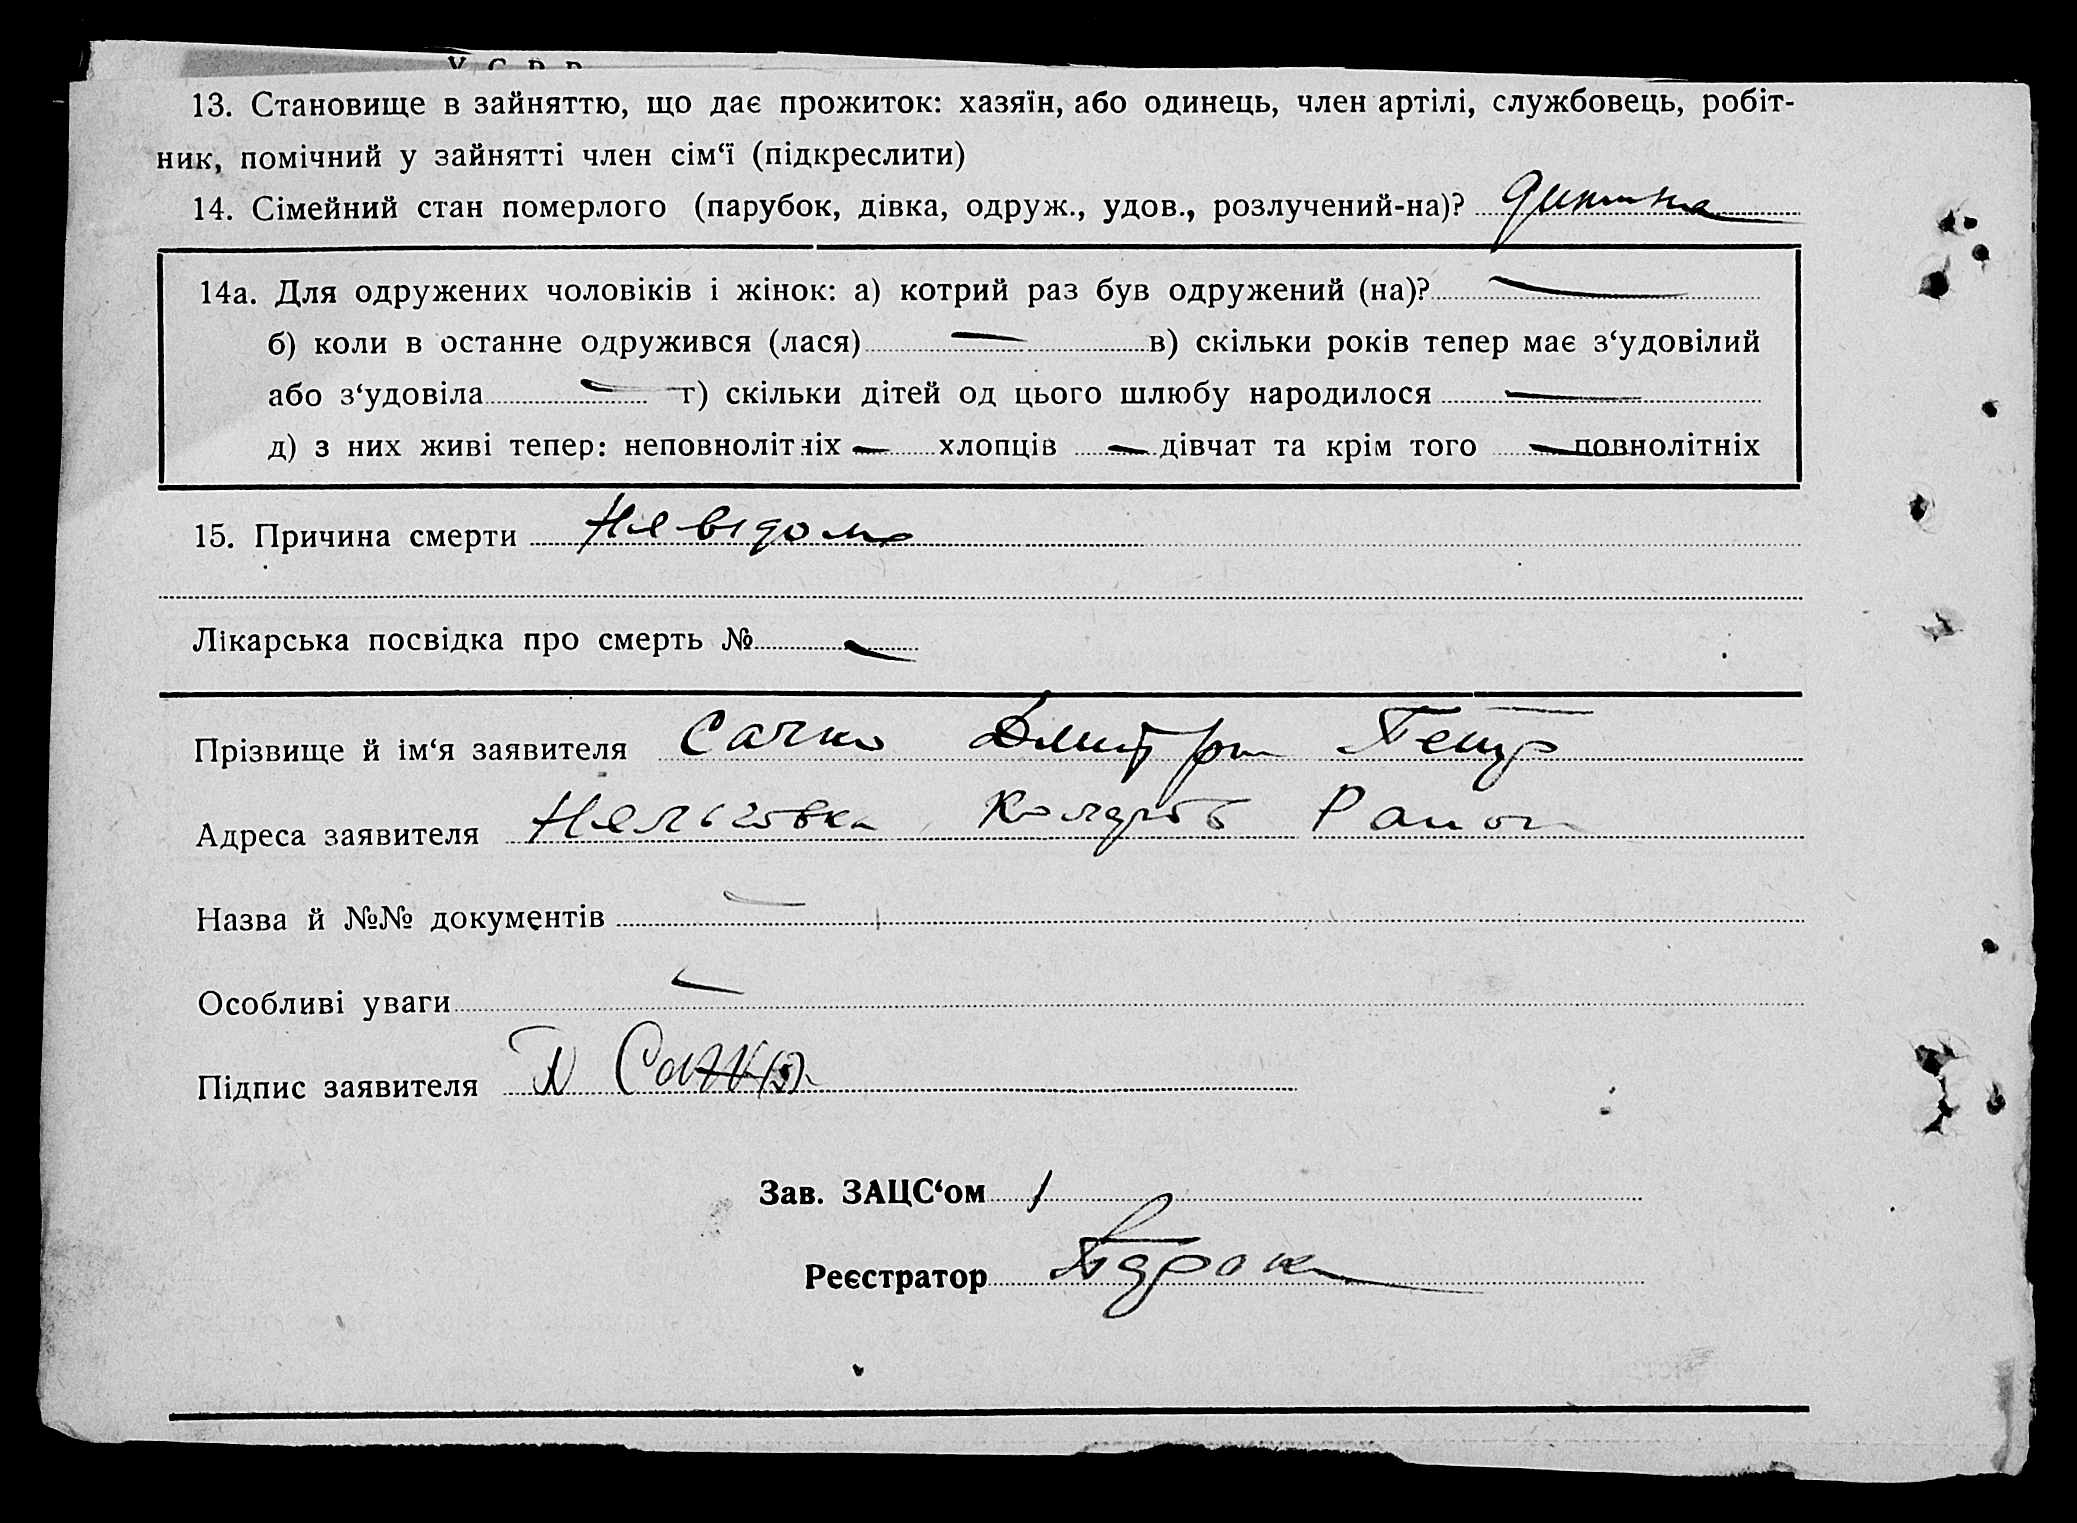 У С Р Р
13. Становище в зайняттю, що дає прожиток: хазяїн, або одинець, член артілі, службовець, робіт-
ник, помічний у зайнятті член сім‘ї (підкреслити)
14. Сімейний стан померлого (парубок, дівка, одруж., удов., розлучений-на)? дитина
14а. Для одружених чоловіків і жінок: а) котрий раз був одружений (на)? —
б) коли в останне одружився (лася) — в) скільки років тепер має з‘удовілий
або з‘удовіла — г) скільки дітей од цього шлюбу народилося —
д) з них живі тепер: неповнолітніх — хлопців — дівчат та крім того — повнолітніх
15. Причина смерти Невідома
Лікарська посвідка про смерть № —
Прізвище й ім‘я заявителя Сачко Дмитро Петр
Адреса заявителя Район
Назва й №№ документів —
Особливі уваги —
Підпис заявителя Сачко
Зав. ЗАЦС‘ом
Реєстратор